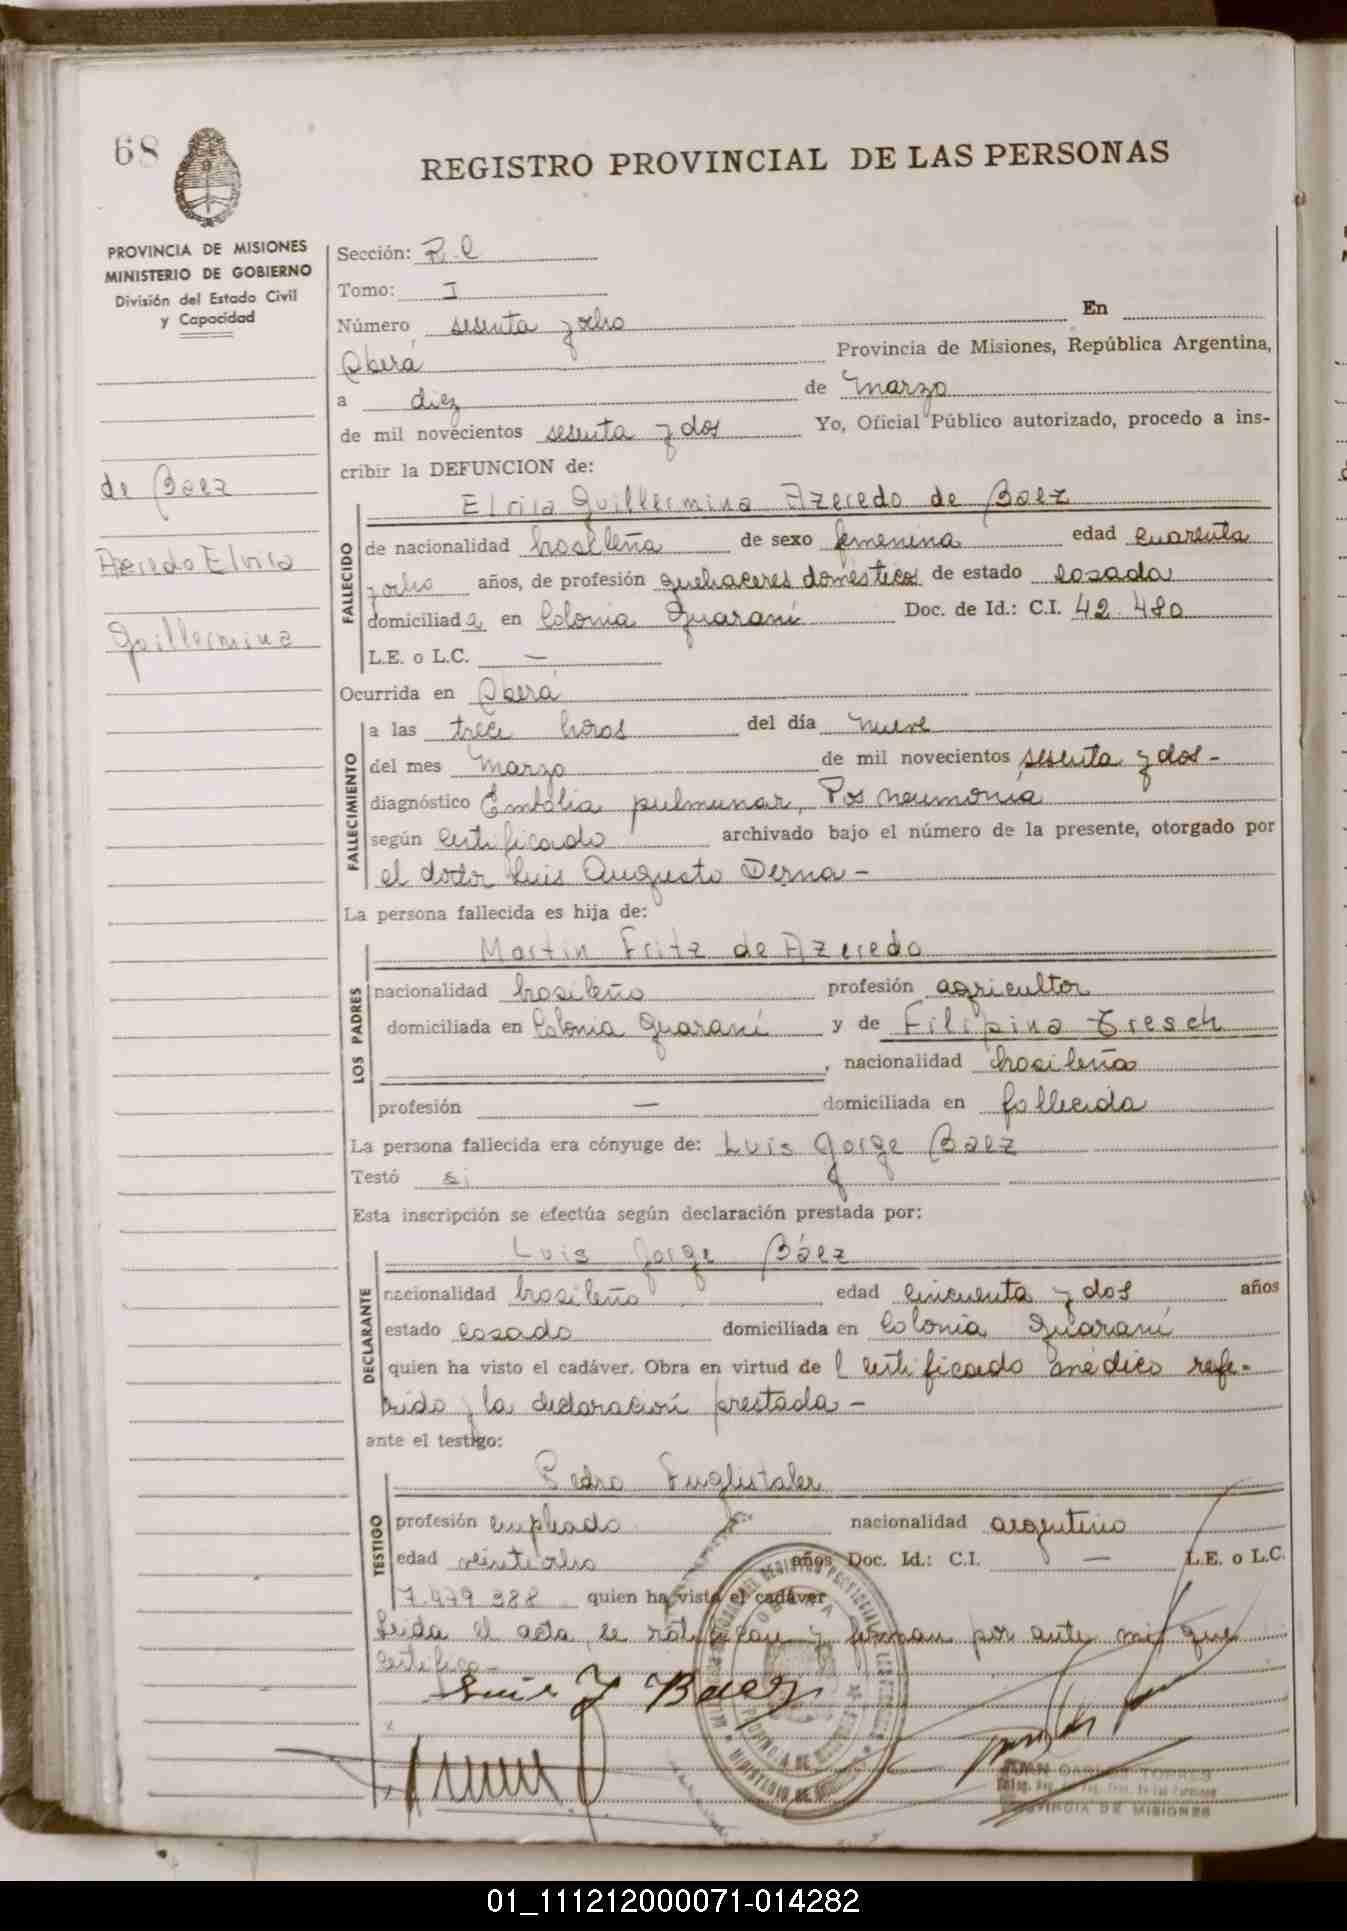 68
REGISTRO PROVINCIAL DE LAS PERSONAS
PROVINCIA DE MISIONES
MINISTERIO DE GOBIERNO
División del Estado Civil
y Capacidad
de Baez
Azeredo Elvira
Guillermina
Sección: R.C
Tomo: I
Número sesenta y ocho En
Oberá Provincia de Misiones, República Argentina,
a diez de Marzo
de mil novecientos sesenta y dos Yo, Oficial Público autorizado, procedo a ins-
cribir la DEFUNCION de:
Elvira Guillermina Azeredo de Baez
FALLECIDO
de nacionalidad brasileña de sexo femenina edad cuarenta
y ocho años, de profesión quehaceres domésticos de estado casada
domiciliada en Colonia Guaraní Doc. de Id.: C.I. 42.480
L.E. o L.C. —
Ocurrida en Oberá
FALLECIMIENTO
a las trece horas del día nueve
del mes Marzo de mil novecientos sesenta y dos-
diagnóstico Embolia pulmunar, Pos neumonia
según certificado archivado bajo el número de la presente, otorgado por
el doctor Luis Augusto Derna-
La persona fallecida es hija de:
Martin Fritz de Azeredo
LOS PADRES
nacionalidad brasileño profesión agricultor
domiciliada en Colonia Guaraní y de Filipina Tresch
, nacionalidad brasileña
profesión — domiciliada en fallecida
La persona fallecida era cónyuge de: Luis Jorge Baez
Testó si
Esta inscripción se efectúa según declaración prestada por:
Luis Jorge Báez
DECLARANTE
nacionalidad brasileño edad cincuenta y dos años
estado casado domiciliada en Colonia Guaraní
quien ha visto el cadáver. Obra en virtud del certificado médico refe-
rido y la declaración prestada-
ante el testigo:
Pedro Fuglistaler
TESTIGO
profesión empleado nacionalidad argentino
edad veintiocho años Doc. Id.: C.I. — L.E. o L.C.
7.479.388 quien ha visto el cadáver
Leida el acta, se ratifican y firman por ante mi que
certifico-
Luis J Baez
JUAN CARLOS TORRES
PROVINCIA DE MISIONES
01_111212000071-014282